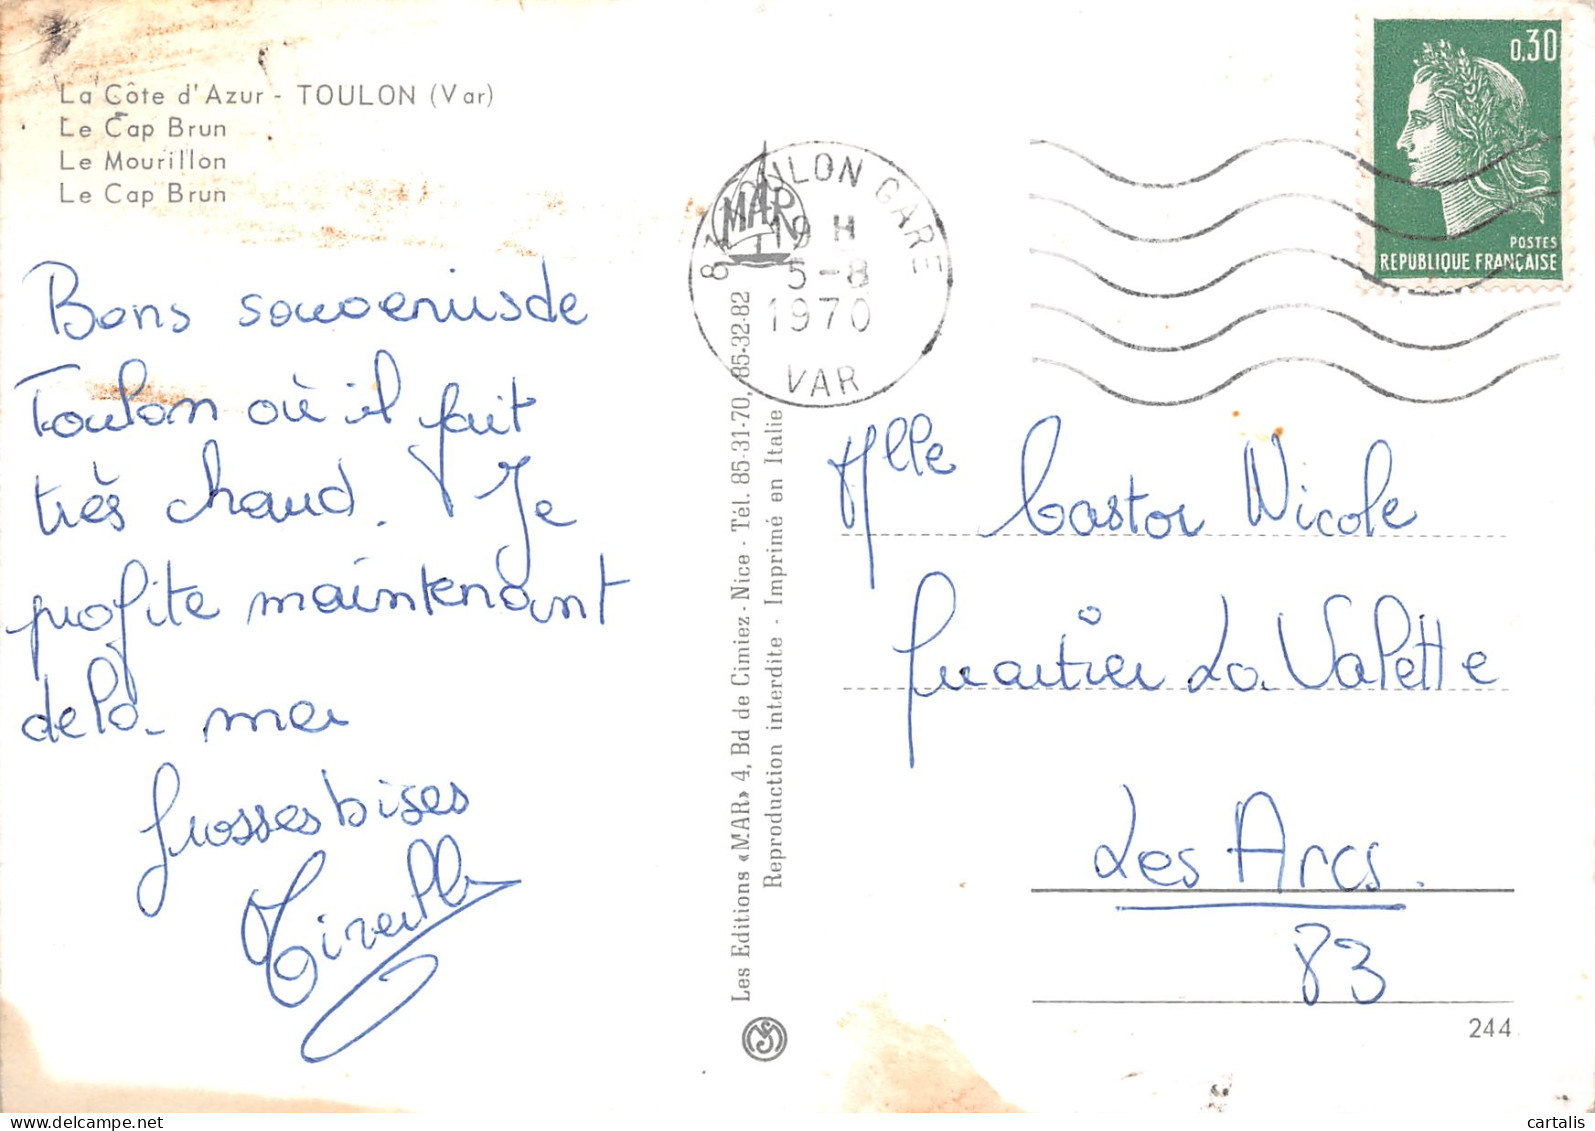 La Côte d'Azur - TOULON (Var)
Le Cap Brun
Le Mourillon
Le Cap Brun
Bons souvenirs de
Toulon où il fait
très chaud. Je
profite maintenant
de la mer
Grosses bises
Mireille
83 TOULON GARE
19 H
5-8
1970
VAR
MAR
0,30
POSTES
REPUBLIQUE FRANÇAISE
Les Editions «MAR» 4, Bd de Cimiez - Nice - Tél. 85-31-70, 85-32-82
Reproduction interdite - Imprimé en Italie
Mlle Castor Nicole
Quartier La Valette
Les Arcs.
83
244
cartalis